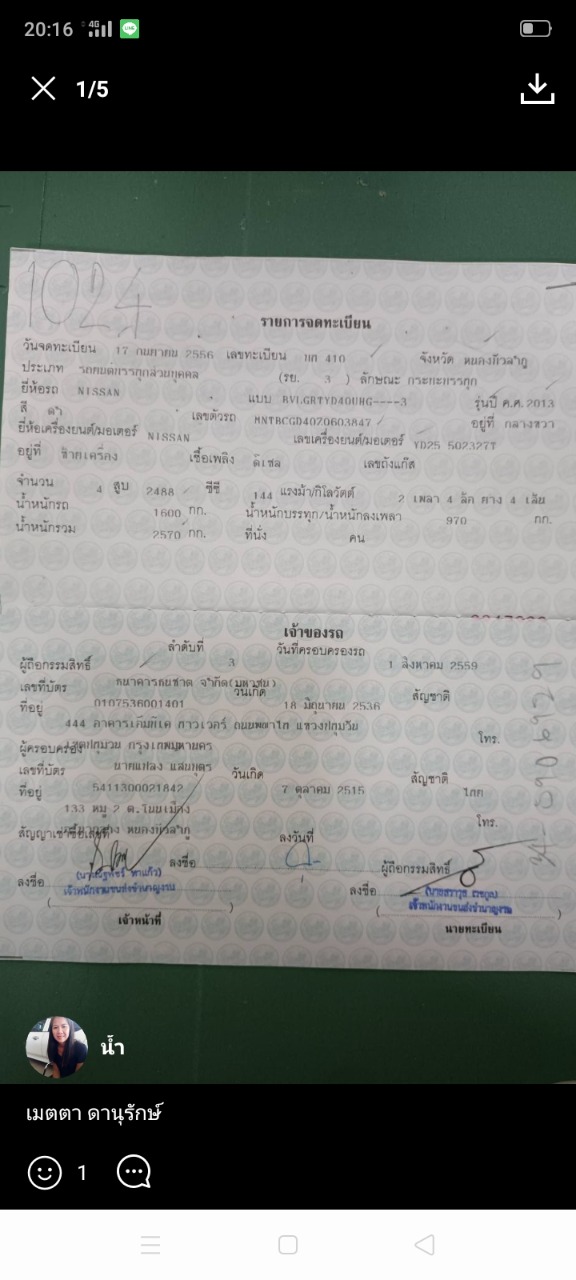 20:16 4G
1/5
1024
รายการจดทะเบียน
วันจดทะเบียน 17 กันยายน 2556 เลขทะเบียน 410 จังหวัด หนองบัวลำภู
ประเภท รถยนต์บรรทุกส่วนบุคคล (รย. 3 ) ลักษณะ กระบะบรรทุก
ยี่ห้อรถ NISSAN แบบ รุ่นปี ค.ศ.2013
สี ดำ เลขตัวรถ MNTBCGD40Z0603847 อยู่ที่ กลางขวา
ยี่ห้อเครื่องยนต์/มอเตอร์ NISSAN เลขเครื่องยนต์/มอเตอร์ YD25 502327T
อยู่ที่ ซ้ายเครื่อง เชื้อเพลิง ดีเซล เลขถังแก๊ส
จำนวน 4 สูบ 2488 ซีซี 144 แรงม้า/กิโลวัตต์ 2 เพลา 4 ล้อ ยาง 4 เส้น
น้ำหนักรถ 1600 กก. น้ำหนักบรรทุก/น้ำหนักลงเพลา 970 กก.
น้ำหนักรวม 2570 กก. ที่นั่ง คน
เจ้าของรถ
ลำดับที่ 3 วันที่ครอบครองรถ 1 สิงหาคม 2559
ผู้ถือกรรมสิทธิ์ ธนาคารธนชาต จำกัด(มหาชน)
เลขที่บัตร 0107536001401 วันเกิด 18 มิถุนายน 2536 สัญชาติ
ที่อยู่ 444 อาคารเอ็มบีเค ทาวเวอร์ ถนนพญาไท แขวงปทุมวัน
เขตปทุมวัน กรุงเทพมหานคร โทร.
ผู้ครอบครอง แสนบุตร
เลขที่บัตร 5411300021842 วันเกิด 7 ตุลาคม 2515 สัญชาติ ไทย
ที่อยู่ 133 หมู่ 2 ต.โนนเมือง
หนองบัวลำภู โทร.
สัญญาเช่าซื้อเลขที่ ลงวันที่
ลงชื่อ ลงชื่อ ผู้ถือกรรมสิทธิ์
เจ้าพนักงานขนส่งชำนาญงาน ลงชื่อ เจ้าพนักงานขนส่งชำนาญงาน
เจ้าหน้าที่ นายทะเบียน
น้ำ
เมตตา ดานุรักษ์
1